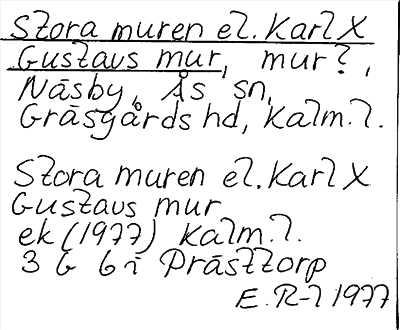 Stora muren el. Karl X
Gustavs mur, mur?,
Näsby, Ås sn,
Gräsgårds hd, Kalm.l.
Stora muren el. Karl X
Gustavs mur
ek (1977) Kalm.l.
3 G 6 i Prästtorp
E. R-l 1977